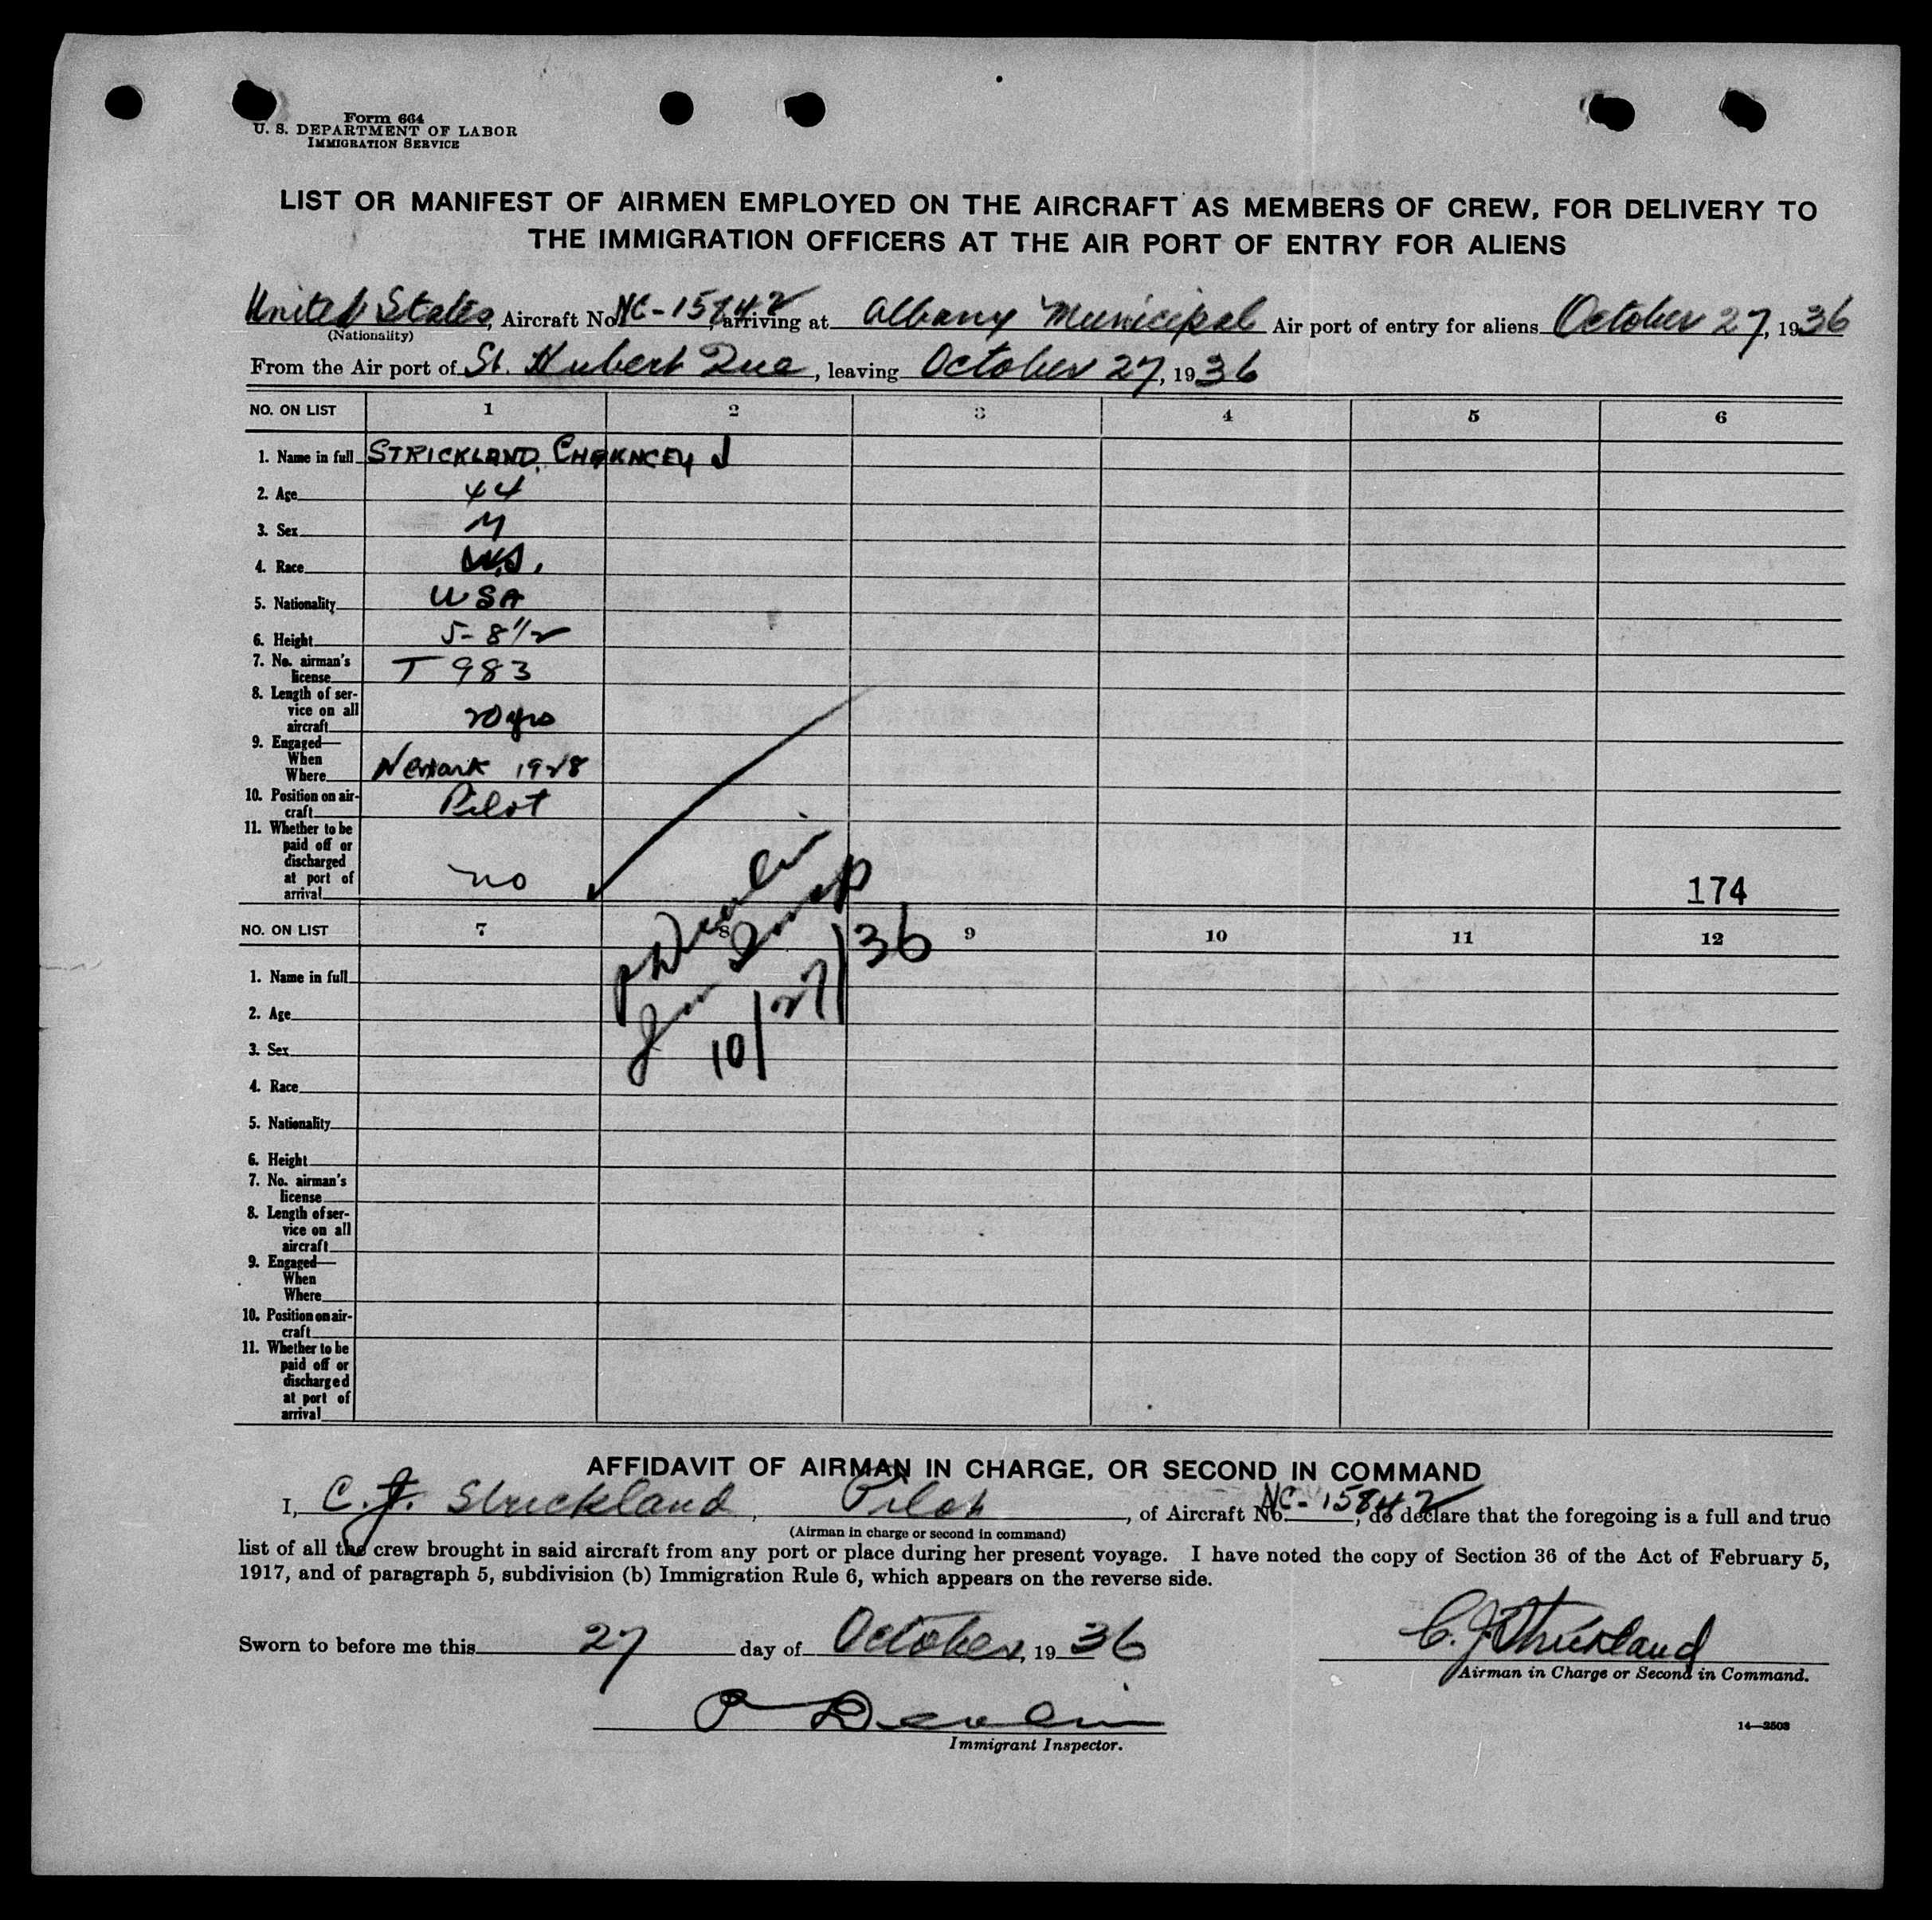 Form 664
U. S. DEPARTMENT OF LABOR
IMMIGRATION SERVICE
LIST OR MANIFEST OF AIRMEN EMPLOYED ON THE AIRCRAFT AS MEMBERS OF CREW, FOR DELIVERY TO
THE IMMIGRATION OFFICERS AT THE AIR PORT OF ENTRY FOR ALIENS
United States, Aircraft No. NC-15842, arriving at Albany Municipal Air port of entry for aliens October 27, 1936
(Nationality)
From the Air port of St. Hubert Que, leaving October 27, 1936
NO. ON LIST 1 2 3 4 5 6
1. Name in full STRICKLAND, CHAUNCEY J
2. Age 44
3. Sex M
4. Race
5. Nationality USA
6. Height 5-8 1/2
7. No. airman's
license T 983
8. Length of ser-
vice on all
aircraft 20 yrs
9. Engaged—
When
Where Newark 1928
10. Position on air-
craft Pilot
11. Whether to be
paid off or
discharged
at port of
arrival no
174
NO. ON LIST 7 8 9 10 11 12
P Devlin
Imm Insp
10/27/36
1. Name in full
2. Age
3. Sex
4. Race
5. Nationality
6. Height
7. No. airman's
license
8. Length of ser-
vice on all
aircraft
9. Engaged—
When
Where
10. Position on air-
craft
11. Whether to be
paid off or
discharged
at port of
arrival
AFFIDAVIT OF AIRMAN IN CHARGE, OR SECOND IN COMMAND
I, C. J. Strickland, Pilot, of Aircraft No. NC-15842, do declare that the foregoing is a full and true
(Airman in charge or second in command)
list of all the crew brought in said aircraft from any port or place during her present voyage. I have noted the copy of Section 36 of the Act of February 5,
1917, and of paragraph 5, subdivision (b) Immigration Rule 6, which appears on the reverse side.
C. J. Strickland
Sworn to before me this 27 day of October, 1936
Airman in Charge or Second in Command.
P Devlin
Immigrant Inspector.
14—2503